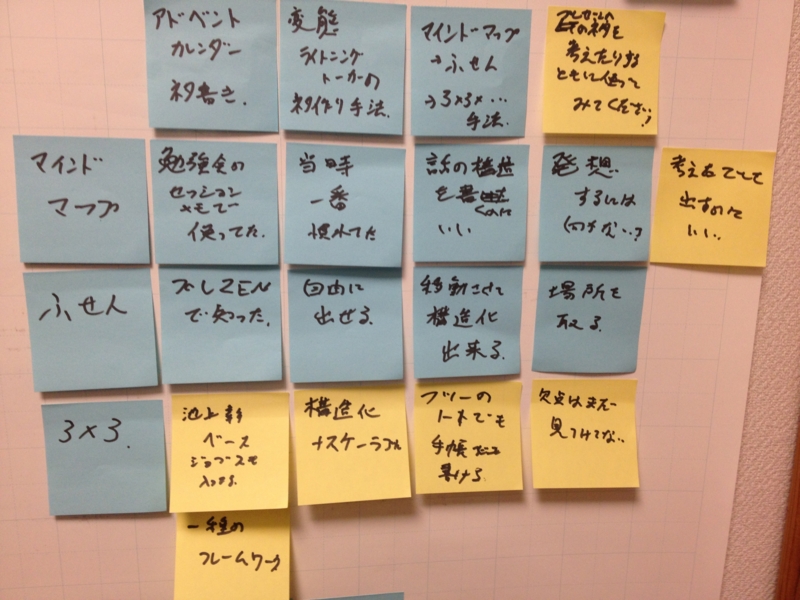 アドベント
カレンダー
ネタ書き.
変態
ライトニング
トーカーの
ネタ作り手法.
マインドマップ
→ふせん
→3×3×…
手法.
のネタを
考えたりする
ともに使って
みてください!
マインド
マップ
勉強会の
セッション
メモで
使ってた.
当時
一番
慣れてた
話の構造
を書く
のに
いい
発想
するには
向かない?
考えをてて
出すのに
いい.
ふせん
プレZEN
で知った.
自由に
出せる.
移動させて
構造化
出来る.
場所を
取る.
3×3.
池上幹
ベース
ジョブズも
入ってる.
構造化
+スケーラブル
フツーの
ノートでも
手帳でも
書ける.
欠点はまだ
見つけてない.
一種の
フレームワーク